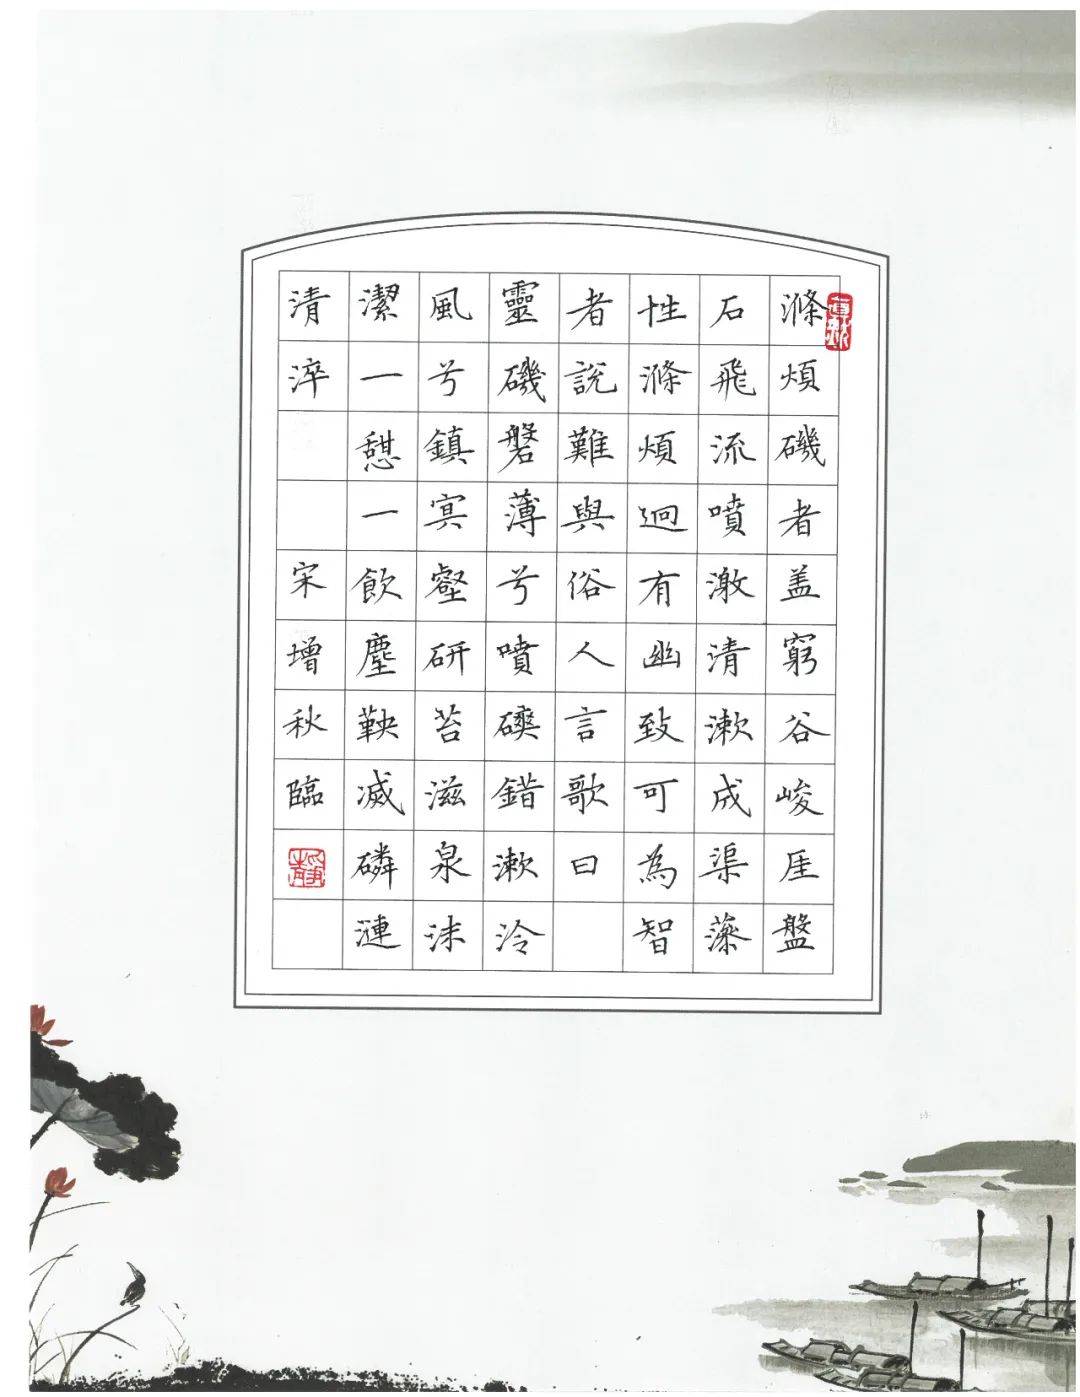 滌煩磯者盖窮谷峻厓盤
石飛流噴激清漱成渠藻
性滌煩迥有幽致可為智
者說難與俗人言歌曰
靈磯磐薄兮噴磢錯漱泠
風兮鎮㝠壑研苔滋泉沫
潔一憇一飲塵鞅滅磷漣
清淬
宋增秋臨
靜